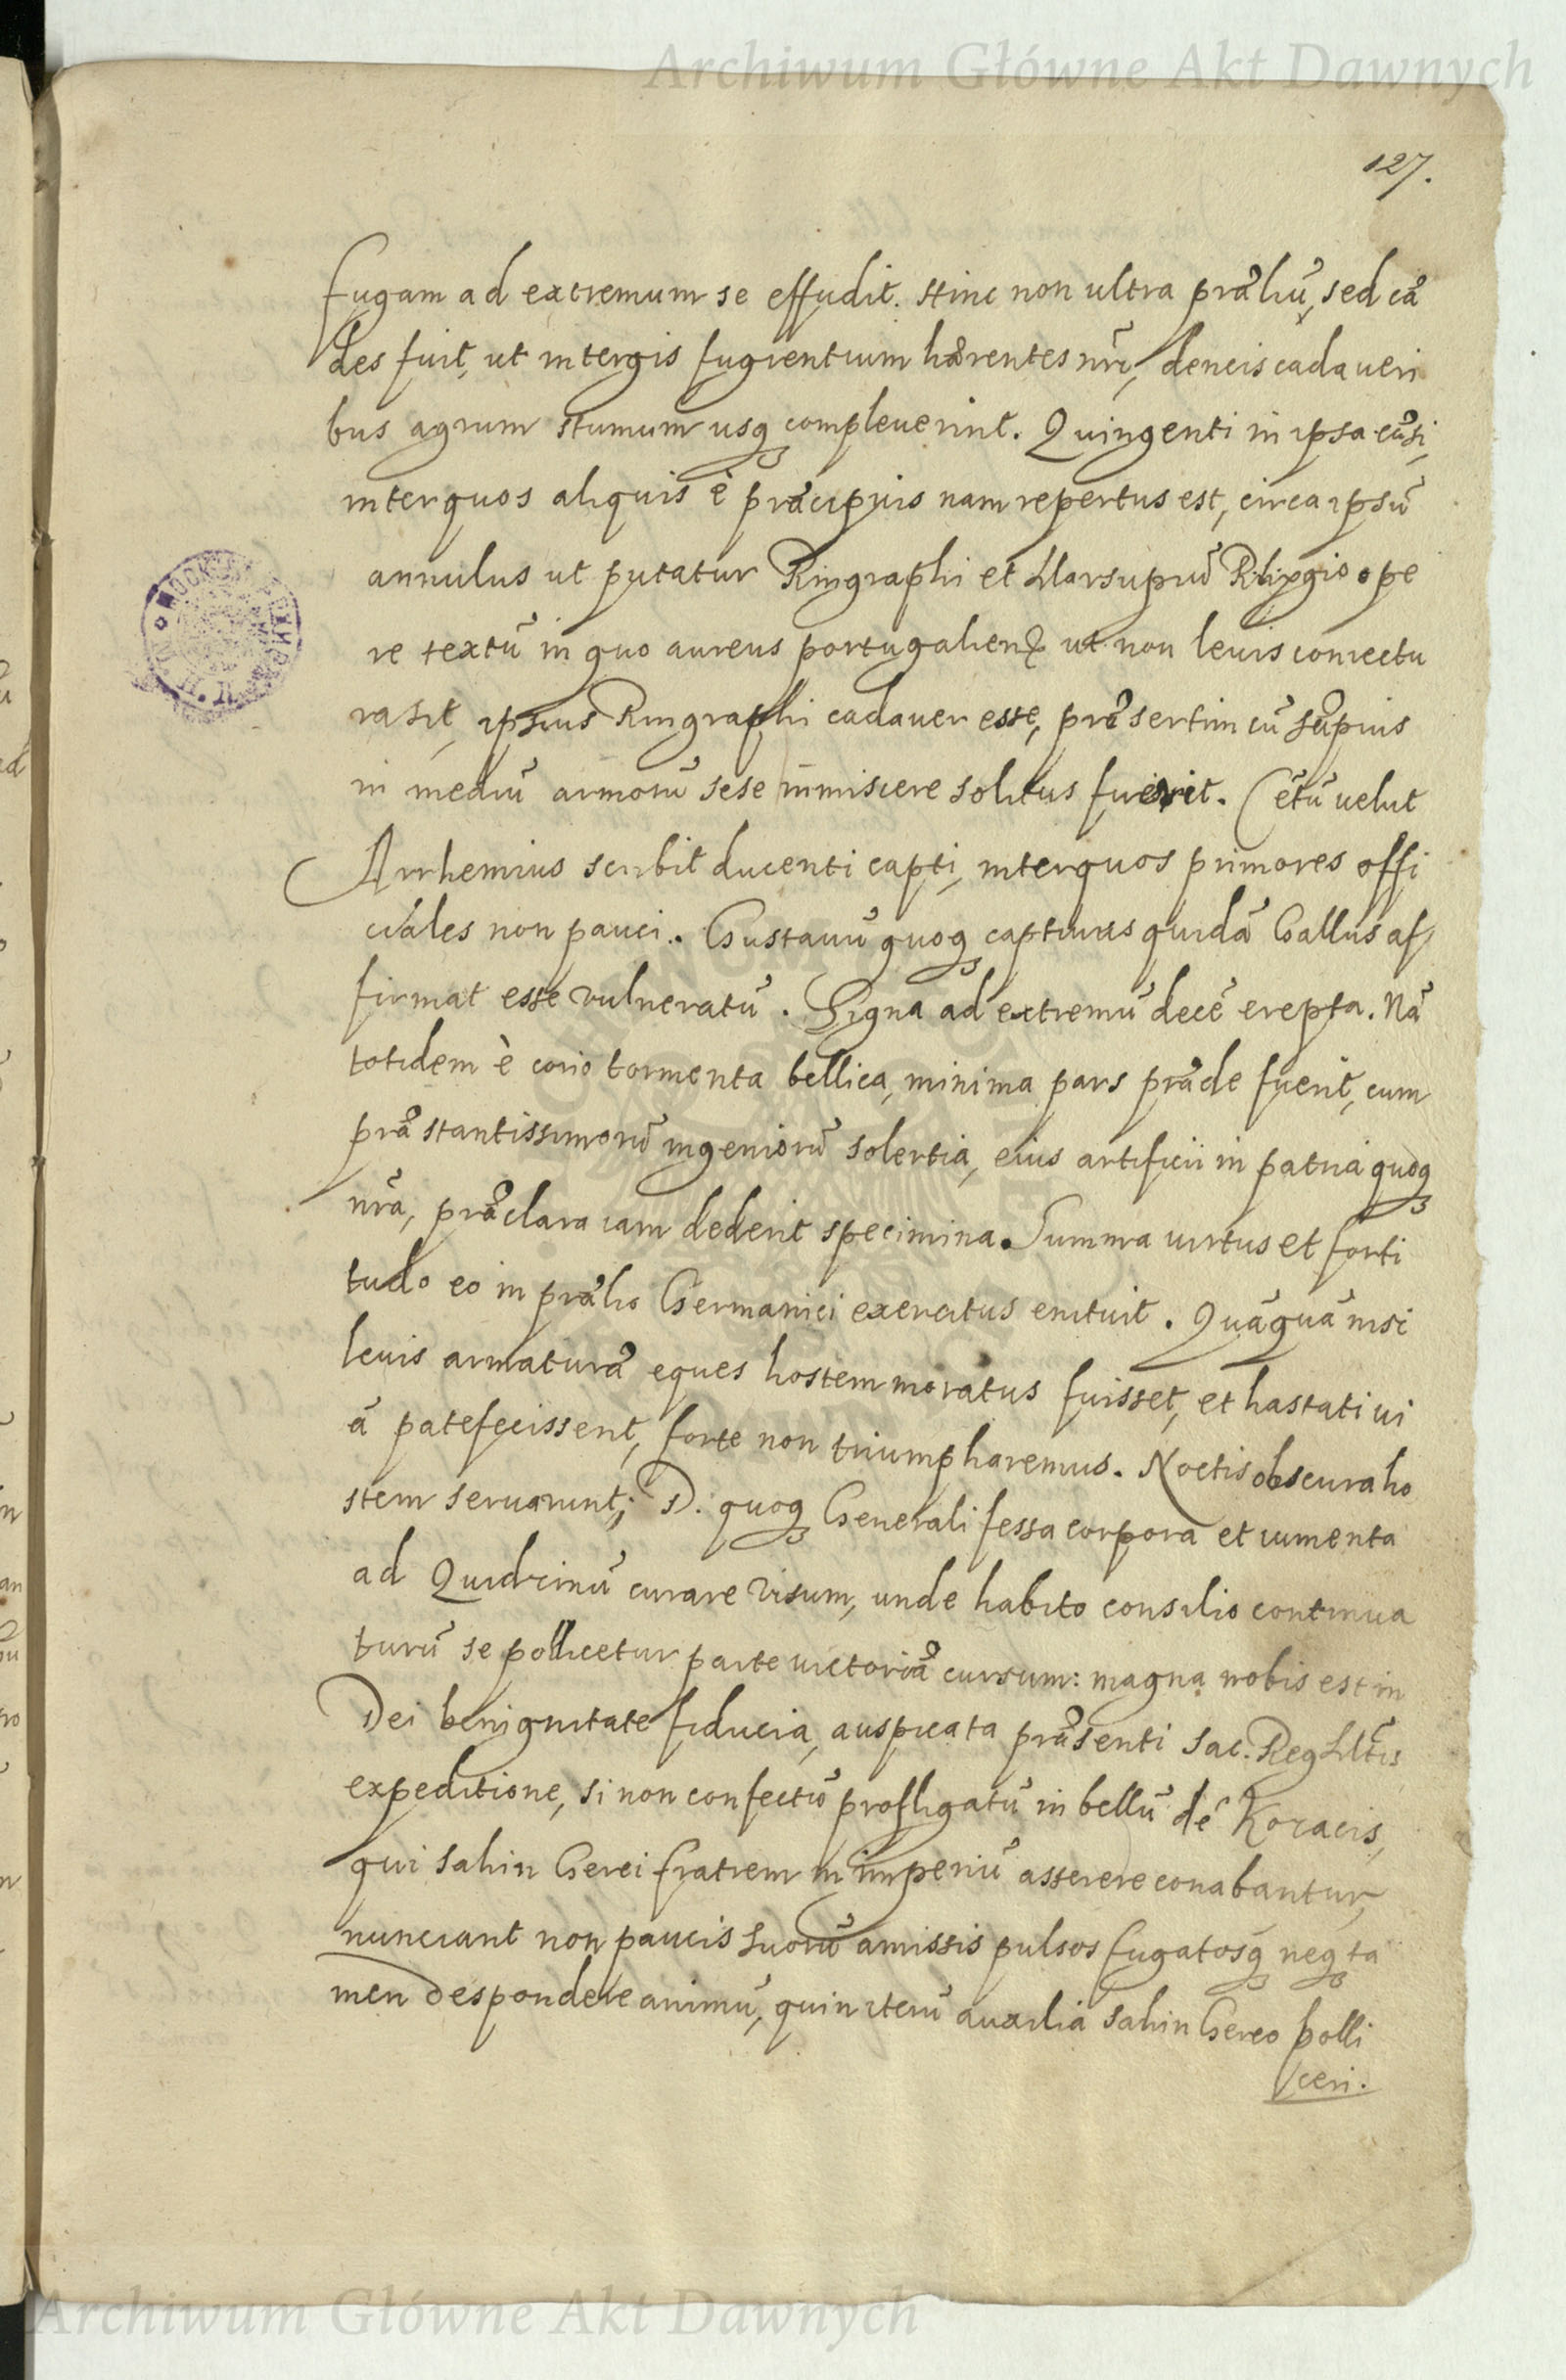 Archiwum Główne Akt Dawnych
127.
fugam ad extremum se effudit. Hinc non ultra præliũ, sed cæ
des fuit, ut in tergis fugientium hærentes nr̃i, densis cadaveri
bus agrum Stumum usq; compleverint. Quingenti in ipsa cæsi,
inter quos aliquis è præcipuis nam repertus est, circa ipsũ
annulus ut putatur Ringraphi et Marsupiũ Phrygio ope
re textũ in quo aureus portugaliens, ut non levis coniectu
ra sit, ipsius Ringraphi cadaver esse, præsertim cũ sæpius
in mediũ armorũ sese immiscere solitus fuerit. Cetũ velut
Arrhemius scribit ducenti capti, inter quos primores offi
ciales non pauci. Gustavũ quoq; captivus quidã Gallus af
firmat esse vulneratũ. Signa ad extremũ decẽ erepta. Nã
totidem è corio tormenta bellica, minima pars prædæ fuerit, cum
præstantissimorũ ingeniorũ solertia, eius artificii in patria quoq;
nr̃a, præclara iam dederit specimina. Summa virtus et forti
tudo eo in prælio Germanici exercitus enituit. Quãquã nisi
levis armaturæ eques hostem moratus fuisset, et hastati vi
ã patefecissent, forte non triumpharemus. Noctis obscura ho
stem servarunt; D. quoq; Generali fessa corpora et iumenta
ad Quidzinũ curare visum, unde habito consilio continua
turũ se pollicetur partæ victoriæ cursum: magna nobis est in
Dei benignitate fiducia, auspicata præsenti Sac. Reg Mtis
expeditione, si non confectũ profligatũ iri bellũ de Kozacis,
qui Sahin Gerei fratrem in imperiũ asserere conabantur,
nunciant non paucis suorũ amissis pulsos fugatosq; neq; ta
men despondere animũ, quin iterũ auxilia Sahin Gereo polli
ceri.
Archiwum Główne Akt Dawnych